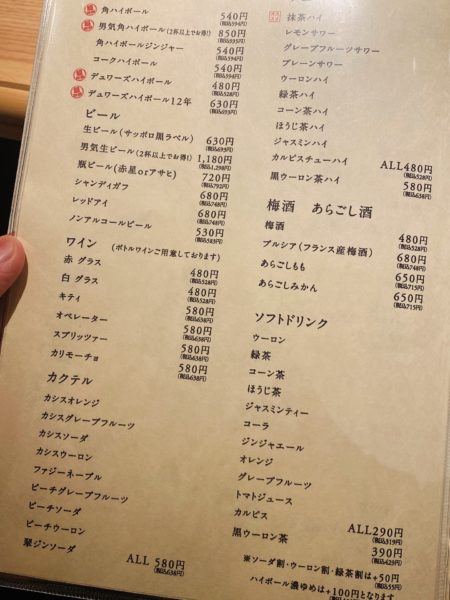 角ハイボール 540円 (税込594円)
男気角ハイボール(2杯以上でお得!) 850円 (税込935円)
角ハイボールジンジャー 540円 (税込594円)
コークハイボール 540円 (税込594円)
デュワーズハイボール 480円 (税込528円)
デュワーズハイボール12年 630円 (税込693円)
ビール
生ビール(サッポロ黒ラベル) 630円 (税込693円)
男気生ビール(2杯以上でお得!) 1,180円 (税込1,298円)
瓶ビール(赤星orアサヒ) 720円 (税込792円)
シャンディガフ 680円 (税込748円)
レッドアイ 680円 (税込748円)
ノンアルコールビール 530円 (税込583円)
ワイン (ボトルワインご用意しております)
赤 グラス 480円 (税込528円)
白 グラス 480円 (税込528円)
キティ 580円 (税込638円)
オペレーター 580円 (税込638円)
スプリッツァー 580円 (税込638円)
カリモーチョ 580円 (税込638円)
カクテル
カシスオレンジ
カシスグレープフルーツ
カシスソーダ
カシスウーロン
ファジーネーブル
ピーチグレープフルーツ
ピーチソーダ
ピーチウーロン
翠ジンソーダ
ALL 580円 (税込638円)
抹茶ハイ
レモンサワー
グレープフルーツサワー
プレーンサワー
ウーロンハイ
緑茶ハイ
コーン茶ハイ
ほうじ茶ハイ
ジャスミンハイ
カルピスチューハイ ALL480円 (税込528円)
黒ウーロン茶ハイ 580円 (税込638円)
梅酒 あらごし酒
梅酒 480円 (税込528円)
プルシア(フランス産梅酒) 680円 (税込748円)
あらごしもも 650円 (税込715円)
あらごしみかん 650円 (税込715円)
ソフトドリンク
ウーロン
緑茶
コーン茶
ほうじ茶
ジャスミンティー
コーラ
ジンジャエール
オレンジ
グレープフルーツ
トマトジュース
カルピス ALL290円 (税込319円)
黒ウーロン茶 390円 (税込429円)
※ソーダ割・ウーロン割・緑茶割は+50円 (税込55円)
ハイボール濃ゆめは+100円となります